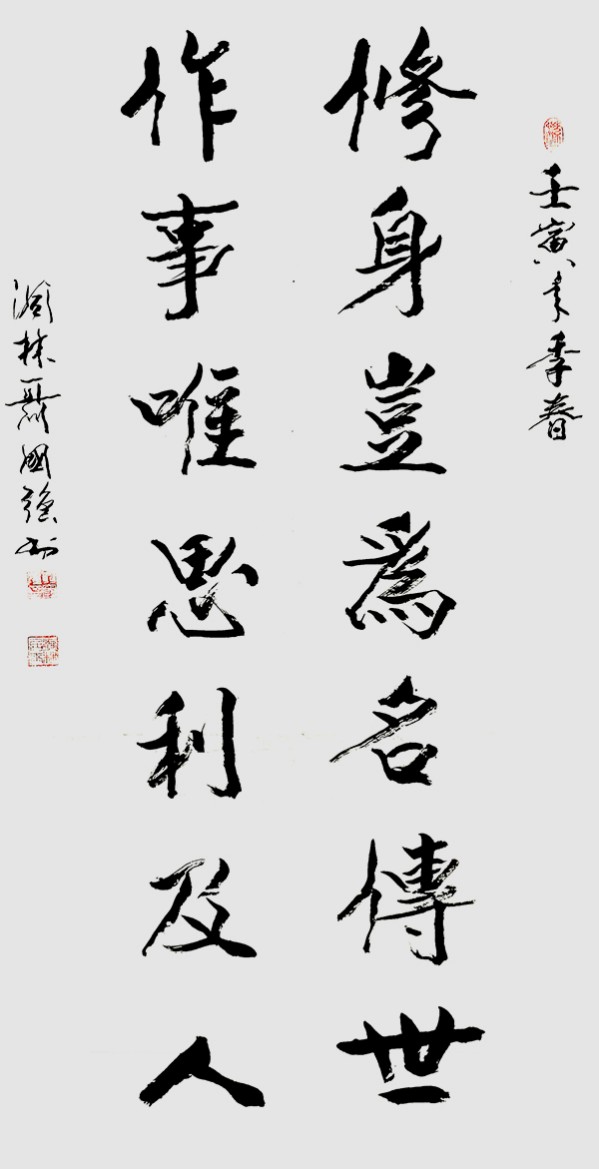 壬寅年季春
修身豈爲名傳世
作事唯思利及人
林聶國強書